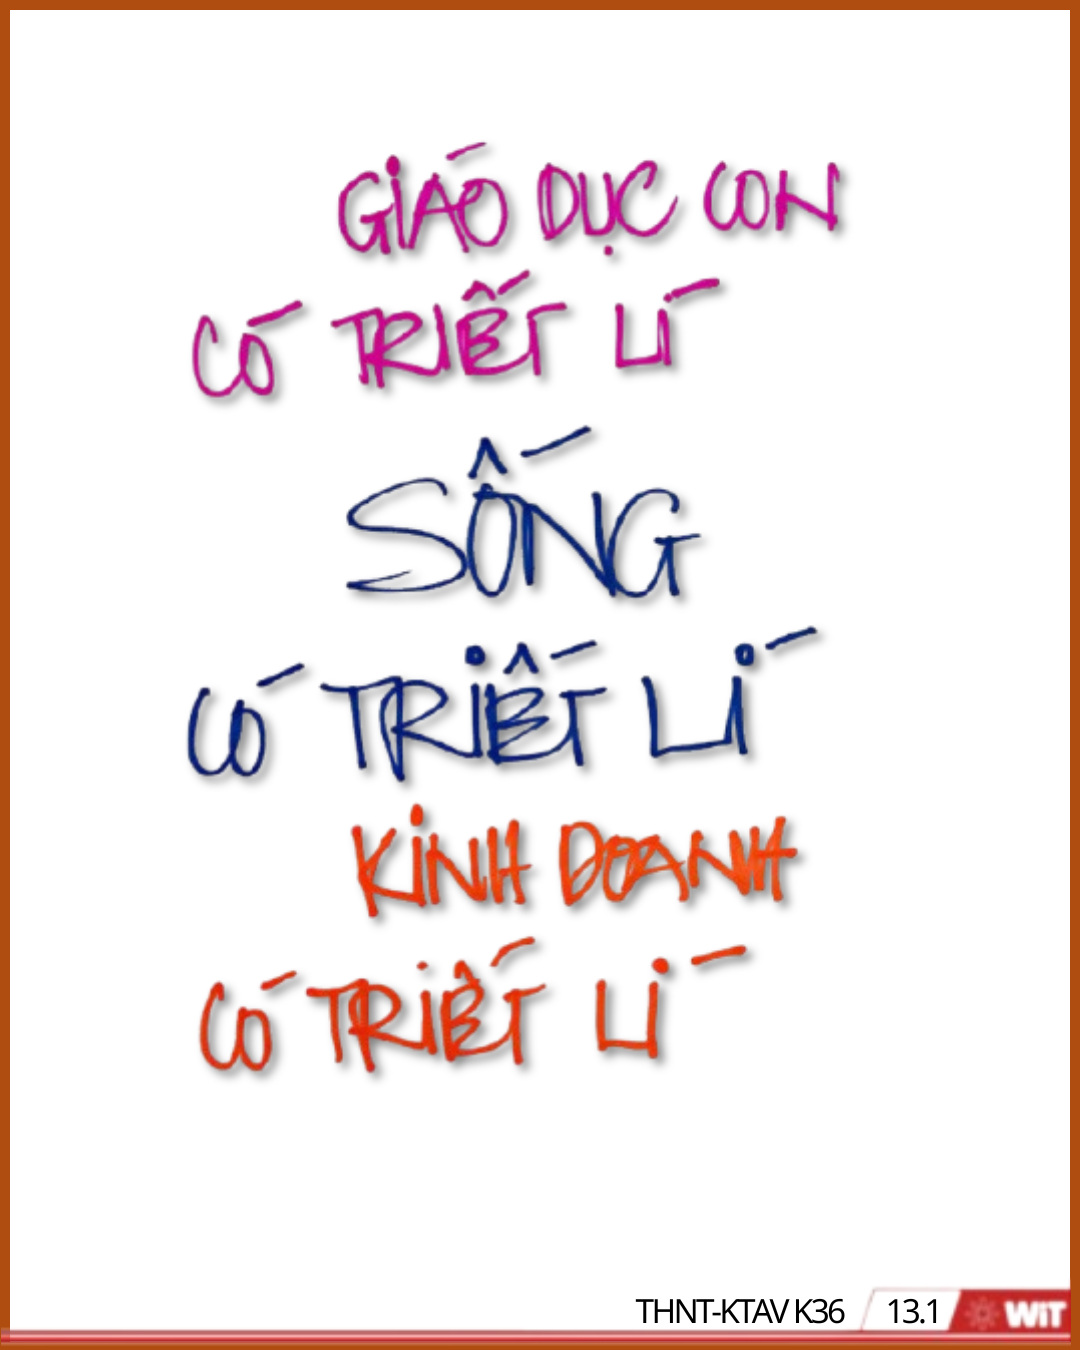 GIÁO DỤC CON
CÓ TRIẾT LÍ
SỐNG
CÓ TRIẾT LÍ
KINH DOANH
CÓ TRIẾT LÍ
THNT-KTAV K36 13.1 WiT